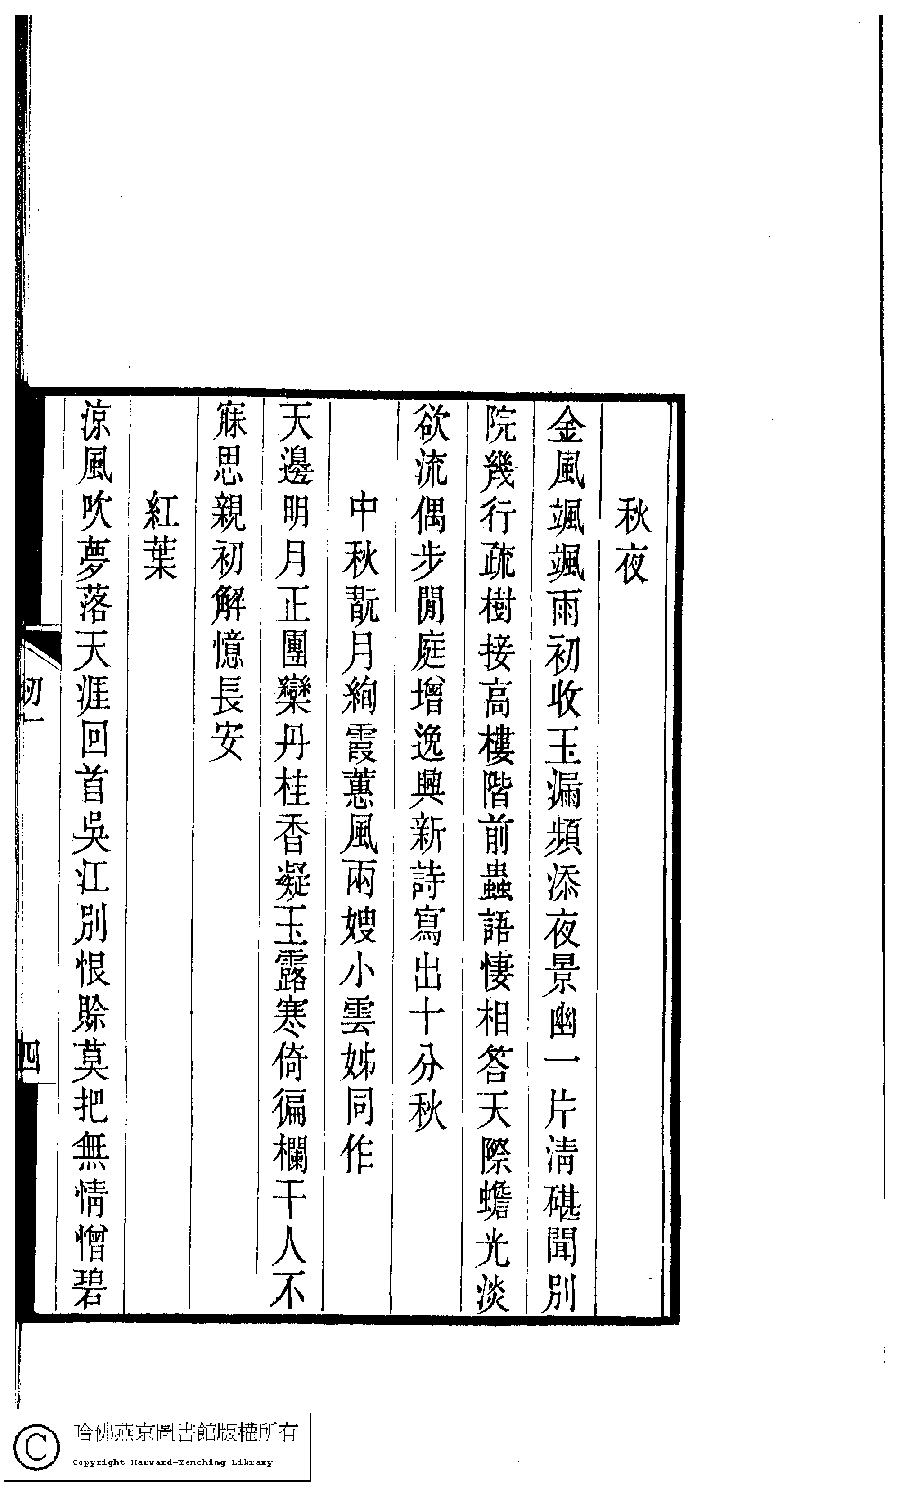 秋夜
金風颯颯雨初收玉漏頻添夜景幽一片淸碪聞別
院幾行疏樹接高樓階前蟲語悽相答天際蟾光淡
欲流偶步閒庭增逸興新詩寫出十分秋
中秋翫月絢霞蕙風兩嫂小雲姊同作
天邊明月正團欒丹桂香凝玉露寒倚徧欄干人不
寐思親初解憶長安
紅葉
涼風吹夢落天涯回首吳江別恨賒莫把無情憎碧
四
哈佛燕京圖書館版權所有
Copyright Harvard-Yenching Library